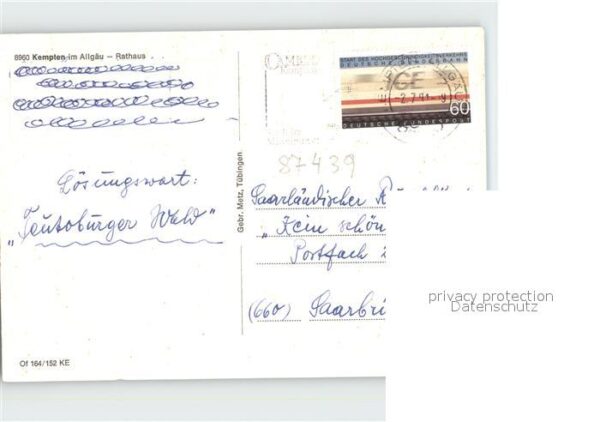 8960 Kempten im Allgäu – Rathaus
START DES HOCHGESCHWINDIGKEITSVERKEHRS
DEUTSCHE BUNDESBAHN
60
DEUTSCHE BUNDESPOST
2.7.91-9
87439
Lösungswort:
"Teutoburger Wald"
Gebr. Metz, Tübingen
Saarländischer
"Kein schön
Postfach
(660) Saarbrü
Of 164/152 KE
privacy protection
Datenschutz